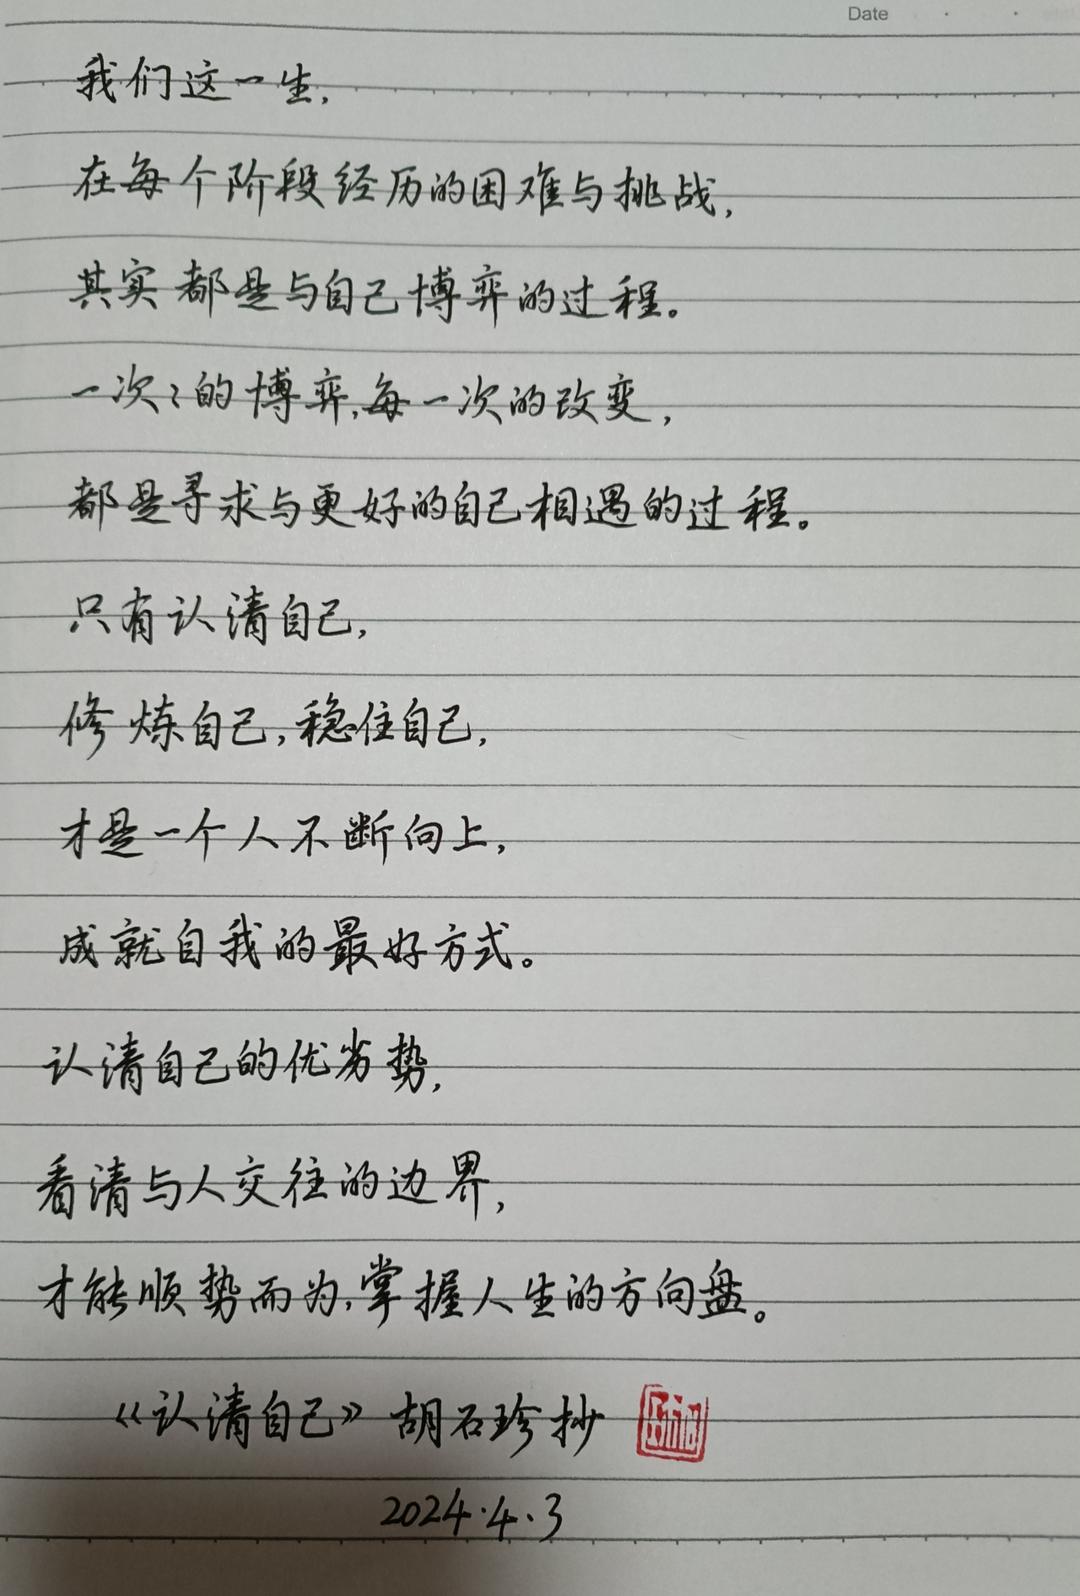 Date
我们这一生,
在每个阶段经历的困难与挑战,
其实都是与自己博弈的过程。
一次々的博弈,每一次的改变,
都是寻求与更好的自己相遇的过程。
只有认清自己,
修炼自己,稳住自己,
才是一个人不断向上,
成就自我的最好方式。
认清自己的优劣势,
看清与人交往的边界,
才能顺势而为,掌握人生的方向盘。
《认清自己》胡石珍抄
2024.4.3